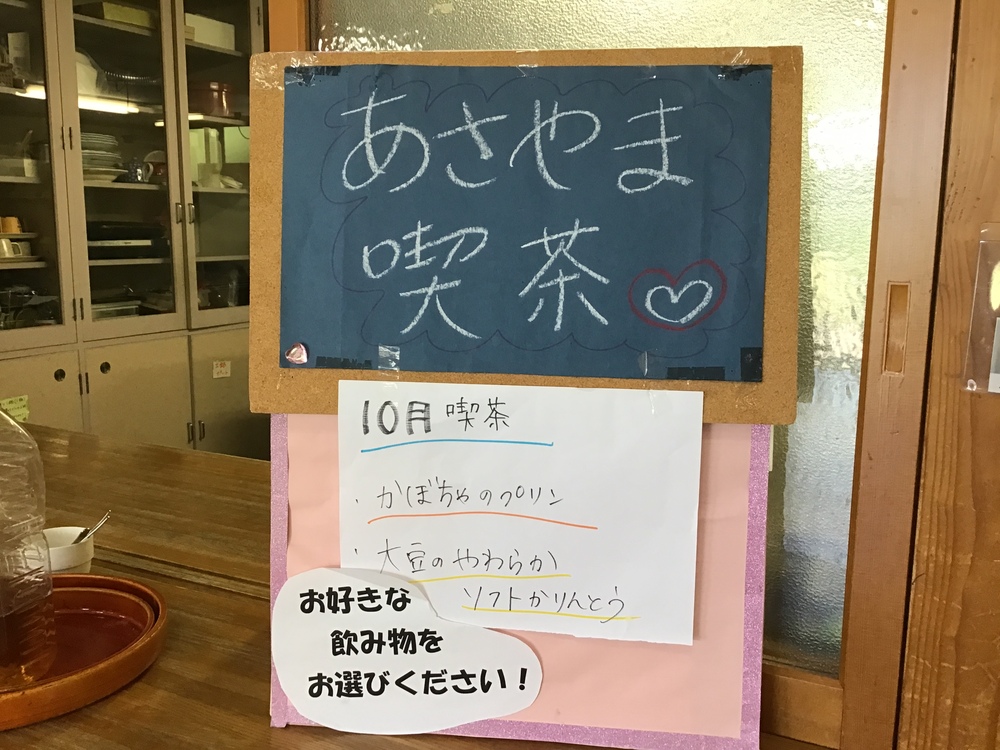 あさやま
喫茶
10月 喫茶
・かぼちゃのプリン
・大豆のやわらか
ソフトかりんとう
お好きな
飲み物を
お選びください！